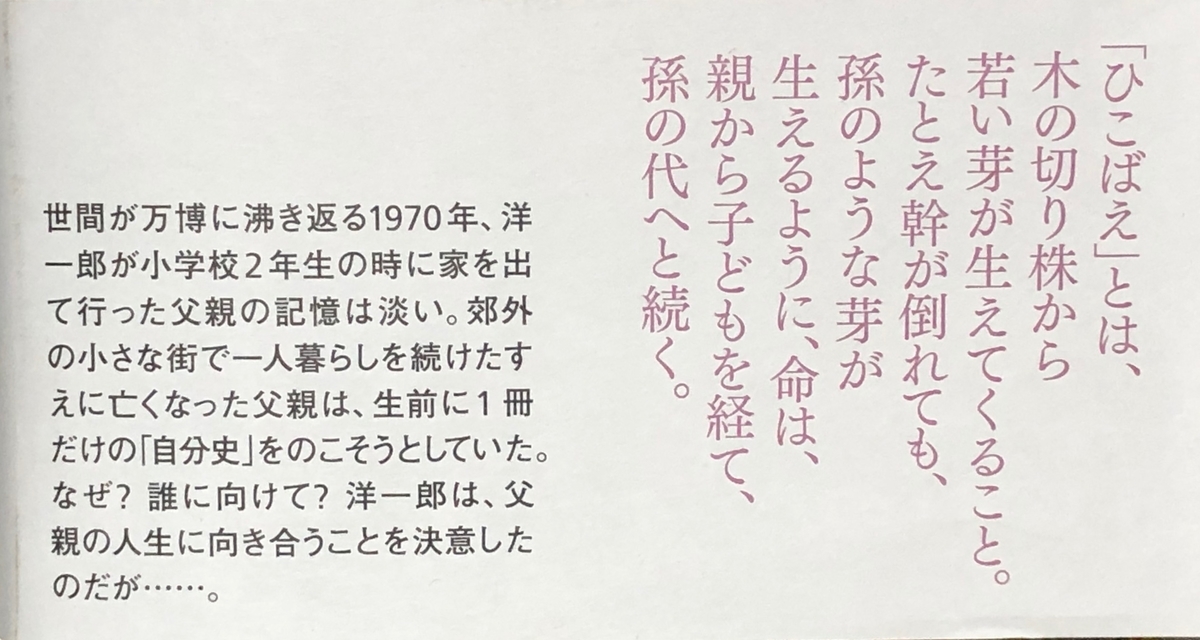 「ひこばえ」とは、
木の切り株から
若い芽が生えてくること。
たとえ幹が倒れても、
孫のような芽が
生えるように、命は、
親から子どもを経て、
孫の代へと続く。
世間が万博に沸き返る1970年、洋
一郎が小学校2年生の時に家を出
て行った父親の記憶は淡い。郊外
の小さな街で一人暮らしを続けたす
えに亡くなった父親は、生前に1冊
だけの「自分史」をのこそうとしていた。
なぜ? 誰に向けて? 洋一郎は、父
親の人生に向き合うことを決意した
のだが……。